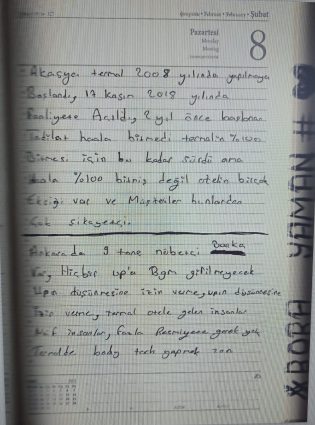 Şubat
Pazartesi
Monday
8
Akasya termal 2008 yılında yapılmaya
Başlandı, 17 Kasım 2018 yılında
Faaliyete Açıldı, 2 yıl önce başlanan
Tadilat haala bitmedi termalin %100
Bitmesi için bu kadar sürdü ama
Haala %100 bitmiş değil otelin birçok
Eksiği var ve Müşteriler bunlardan
Çok şikayetçi.
Ankara da 9 tane nöbetçi Başka
Var, Hiçbir up'a Bgm gitilmeyecek
düşünmesine izin verme, upin düşünmesine
İzin verme, termal otele gelen insanlar
insanlar, fazla Resmiyete gerek yok
Termalde body tech yapmak
#BORA YAMAN #